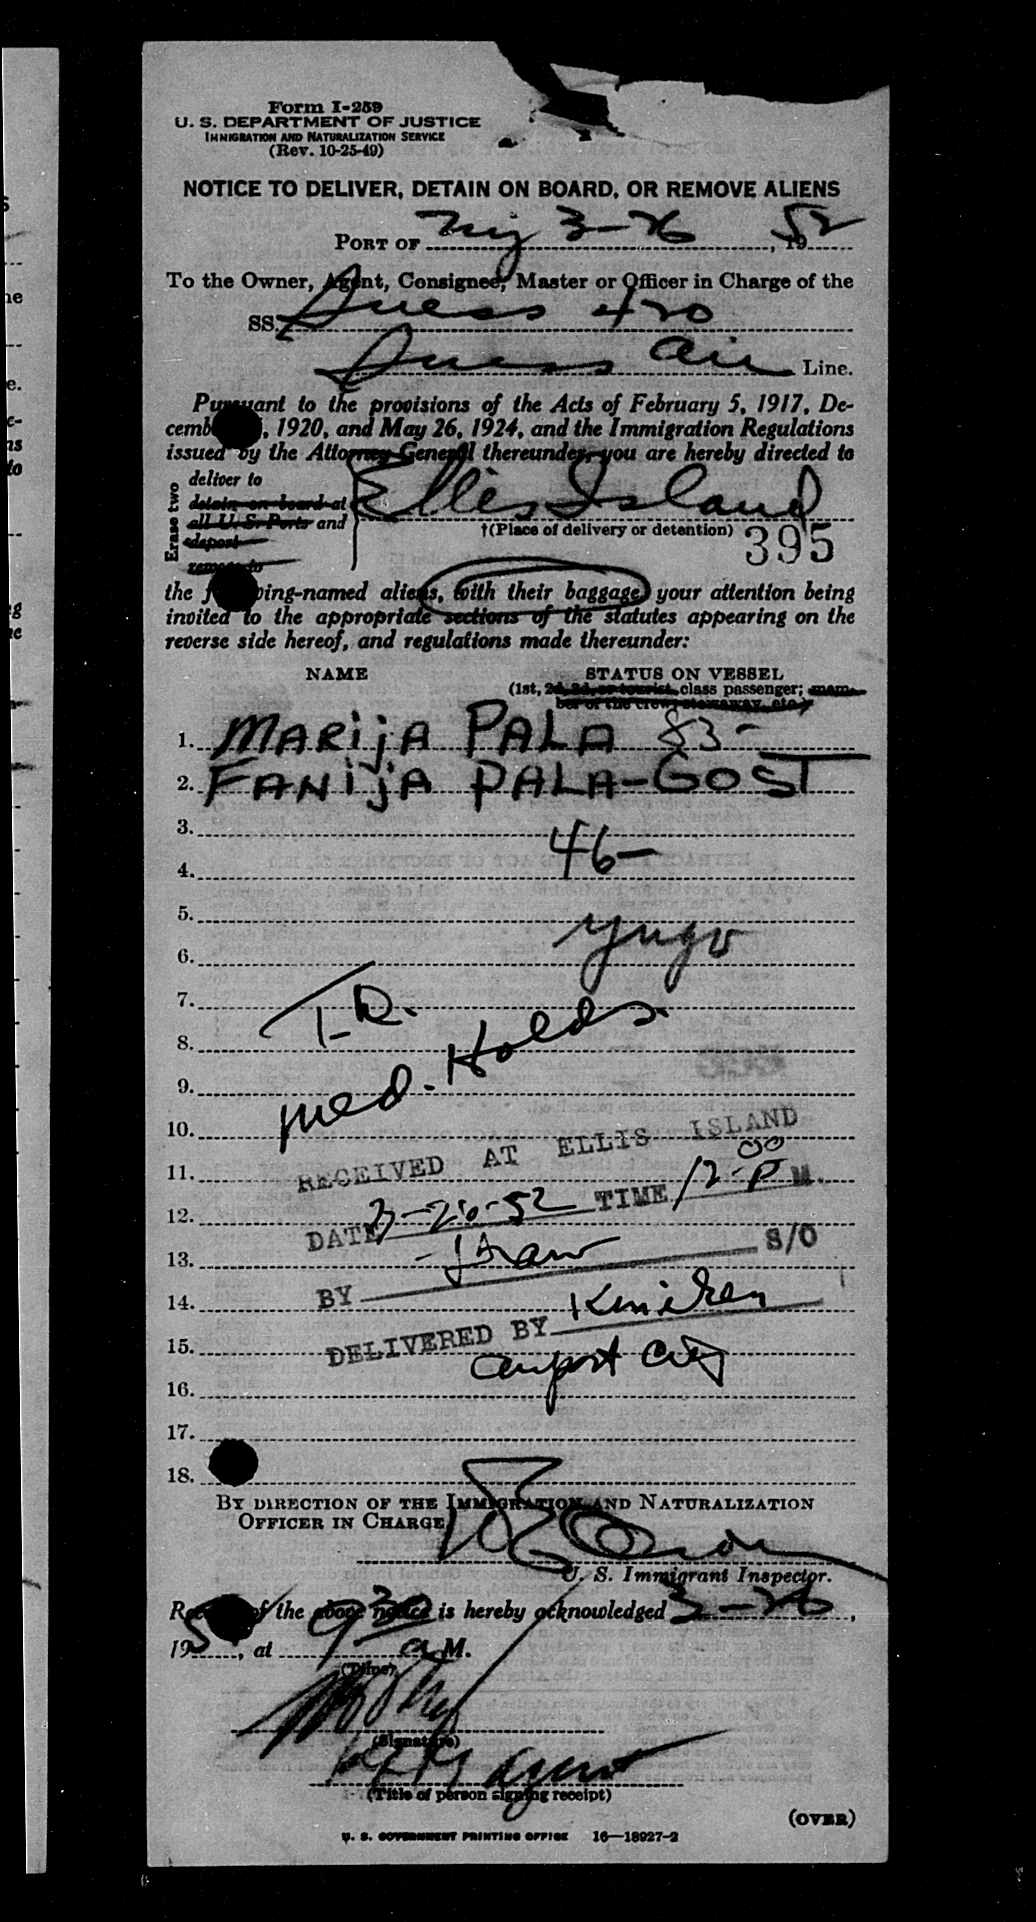 Form I-259
U. S. DEPARTMENT OF JUSTICE
IMMIGRATION AND NATURALIZATION SERVICE
(Rev. 10-25-49)
NOTICE TO DELIVER, DETAIN ON BOARD, OR REMOVE ALIENS
PORT OF 3-26, 1952
To the Owner, Agent, Consignee, Master or Officer in Charge of the
SS. 420
Air Line.
Pursuant to the provisions of the Acts of February 5, 1917, De-
cemb , 1920, and May 26, 1924, and the Immigration Regulations
issued by the Attorney General thereunder, you are hereby directed to
Erase two
deliver to
detain on board at
all U. S. Ports and
depost
remove to
Ellis Island
†(Place of delivery or detention) 395
the f ing-named aliens, with their baggage, your attention being
invited to the appropriate sections of the statutes appearing on the
reverse side hereof, and regulations made thereunder:
NAME STATUS ON VESSEL
(1st, 2d, 3d, or tourist, class passenger; mem-
ber of the crew, stowaway, etc.)
1. MARIJA PALA 83-
2. FANIJA PALA-GOST
3.
46-
4.
5.
Yugo
6.
7.
T.D.
8.
Med. Holds
9.
10.
RECEIVED AT ELLIS ISLAND
11.
DATE 3-26-52 TIME 12-00 P M.
12.
13.
BY S/O
14.
DELIVERED BY
15.
airport
16.
17.
18.
BY DIRECTION OF THE IMMIGRATION AND NATURALIZATION
OFFICER IN CHARGE
U. S. Immigrant Inspector.
Re of the above notice is hereby acknowledged 3-26,
195 , at 9 30 a M.
(Time)
(Signature)
agent
(Title of person signing receipt)
(OVER)
U. S. GOVERNMENT PRINTING OFFICE 16-18927-2